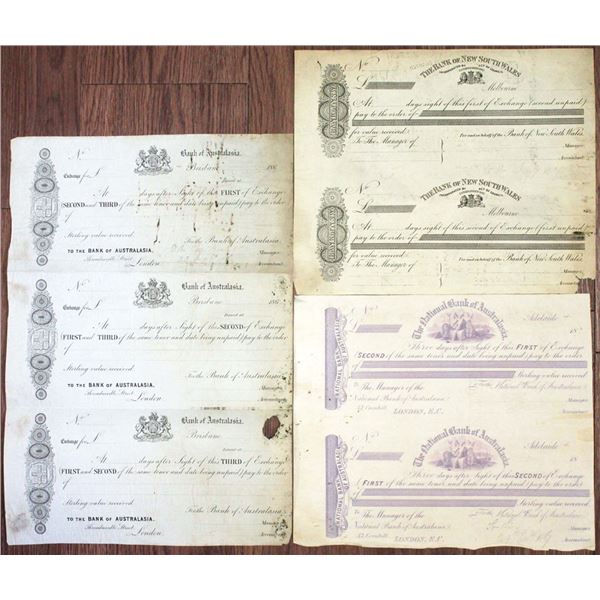 No
Bank of Australasia.
Brisbane
186
Exchange for £
Payable at
At days after Sight of this FIRST of Exchange
(SECOND and THIRD of the same tenor and date being unpaid) pay to the order
of
Sterling value received
For the Bank of Australasia.
TO THE BANK OF AUSTRALASIA.
Threadneedle Street
London.
Manager.
Accountant.
No
Bank of Australasia.
Brisbane
186
Exchange for £
At days after Sight of this SECOND of Exchange
(FIRST and THIRD of the same tenor and date being unpaid) pay to the order
of
Sterling value received
For the Bank of Australasia.
TO THE BANK OF AUSTRALASIA.
Threadneedle Street
London
Manager.
Accountant.
Bank of Australasia.
Brisbane
Exchange for £
At days after Sight of this THIRD of Exchange
(FIRST and SECOND of the same tenor and date being unpaid) pay to the order
of
Sterling value received
For the Bank of Australasia.
TO THE BANK OF AUSTRALASIA.
Threadneedle Street
London.
Manager.
Accountant.
No
THE BANK OF NEW SOUTH WALES
£
Melbourne
At days sight of this first of Exchange (second unpaid)
pay to the order of
for value received
For and on behalf of the Bank of New South Wales.
To The Manager of
Manager.
Accountant.
No
THE BANK OF NEW SOUTH WALES
£
Melbourne
At days sight of this second of Exchange (first unpaid)
pay to the order of
for value received
For and on behalf of the Bank of New South Wales.
To The Manager of
Manager.
Accountant.
No
The National Bank of Australasia.
Adelaide
£
18
Three days after Sight of this FIRST of Exchange
(SECOND of the same tenor and date being unpaid) pay to the order
of
Sterling value received
To The Manager of the
For the National Bank of Australasia
National Bank of Australasia
47 Cornhill
LONDON, E.C.
Manager.
Accountant.
No
The National Bank of Australasia.
Adelaide
£
18
Three days after Sight of this SECOND of Exchange
(FIRST of the same tenor and date being unpaid) pay to the order
of
Sterling value received
To The Manager of the
For the National Bank of Australasia
National Bank of Australasia
47 Cornhill
LONDON, E.C.
Manager.
Accountant.